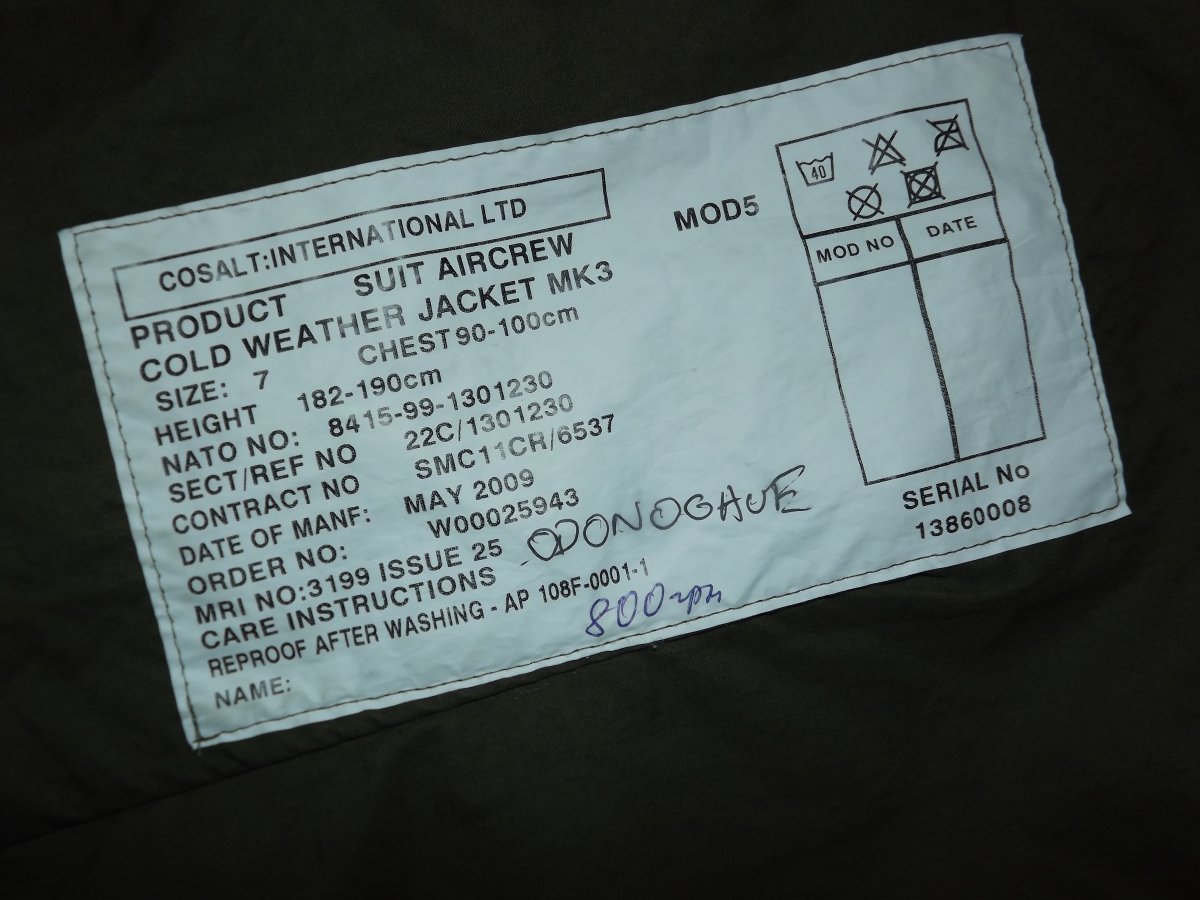 COSALT:INTERNATIONAL LTD
MOD5
PRODUCT SUIT AIRCREW
COLD WEATHER JACKET MK3
SIZE: 7 CHEST 90-100cm
HEIGHT 182-190cm
NATO NO: 8415-99-1301230
SECT/REF NO 22C/1301230
CONTRACT NO SMC11CR/6537
DATE OF MANF: MAY 2009
ORDER NO: W00025943
MRI NO:3199 ISSUE 25
CARE INSTRUCTIONS ODONOGHUE
REPROOF AFTER WASHING - AP 108F-0001-1
NAME:
800 грн
40
MOD NO DATE
SERIAL No
13860008